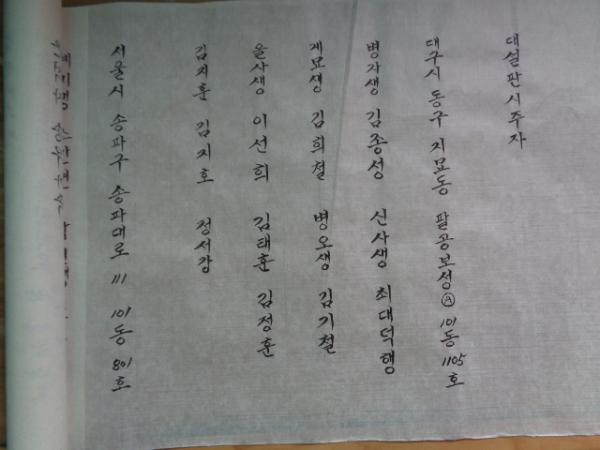 대설판시주자
대구시 동구 지묘동 팔공보성Ⓐ 101동 1105호
병자생 김종성 신사생 최대덕행
계묘생 김희철 병오생 김기철
을사생 이선희 김태훈 김정훈
김지훈 김지호 정서강
서울시 송파구 송파대로 111 101동 801호